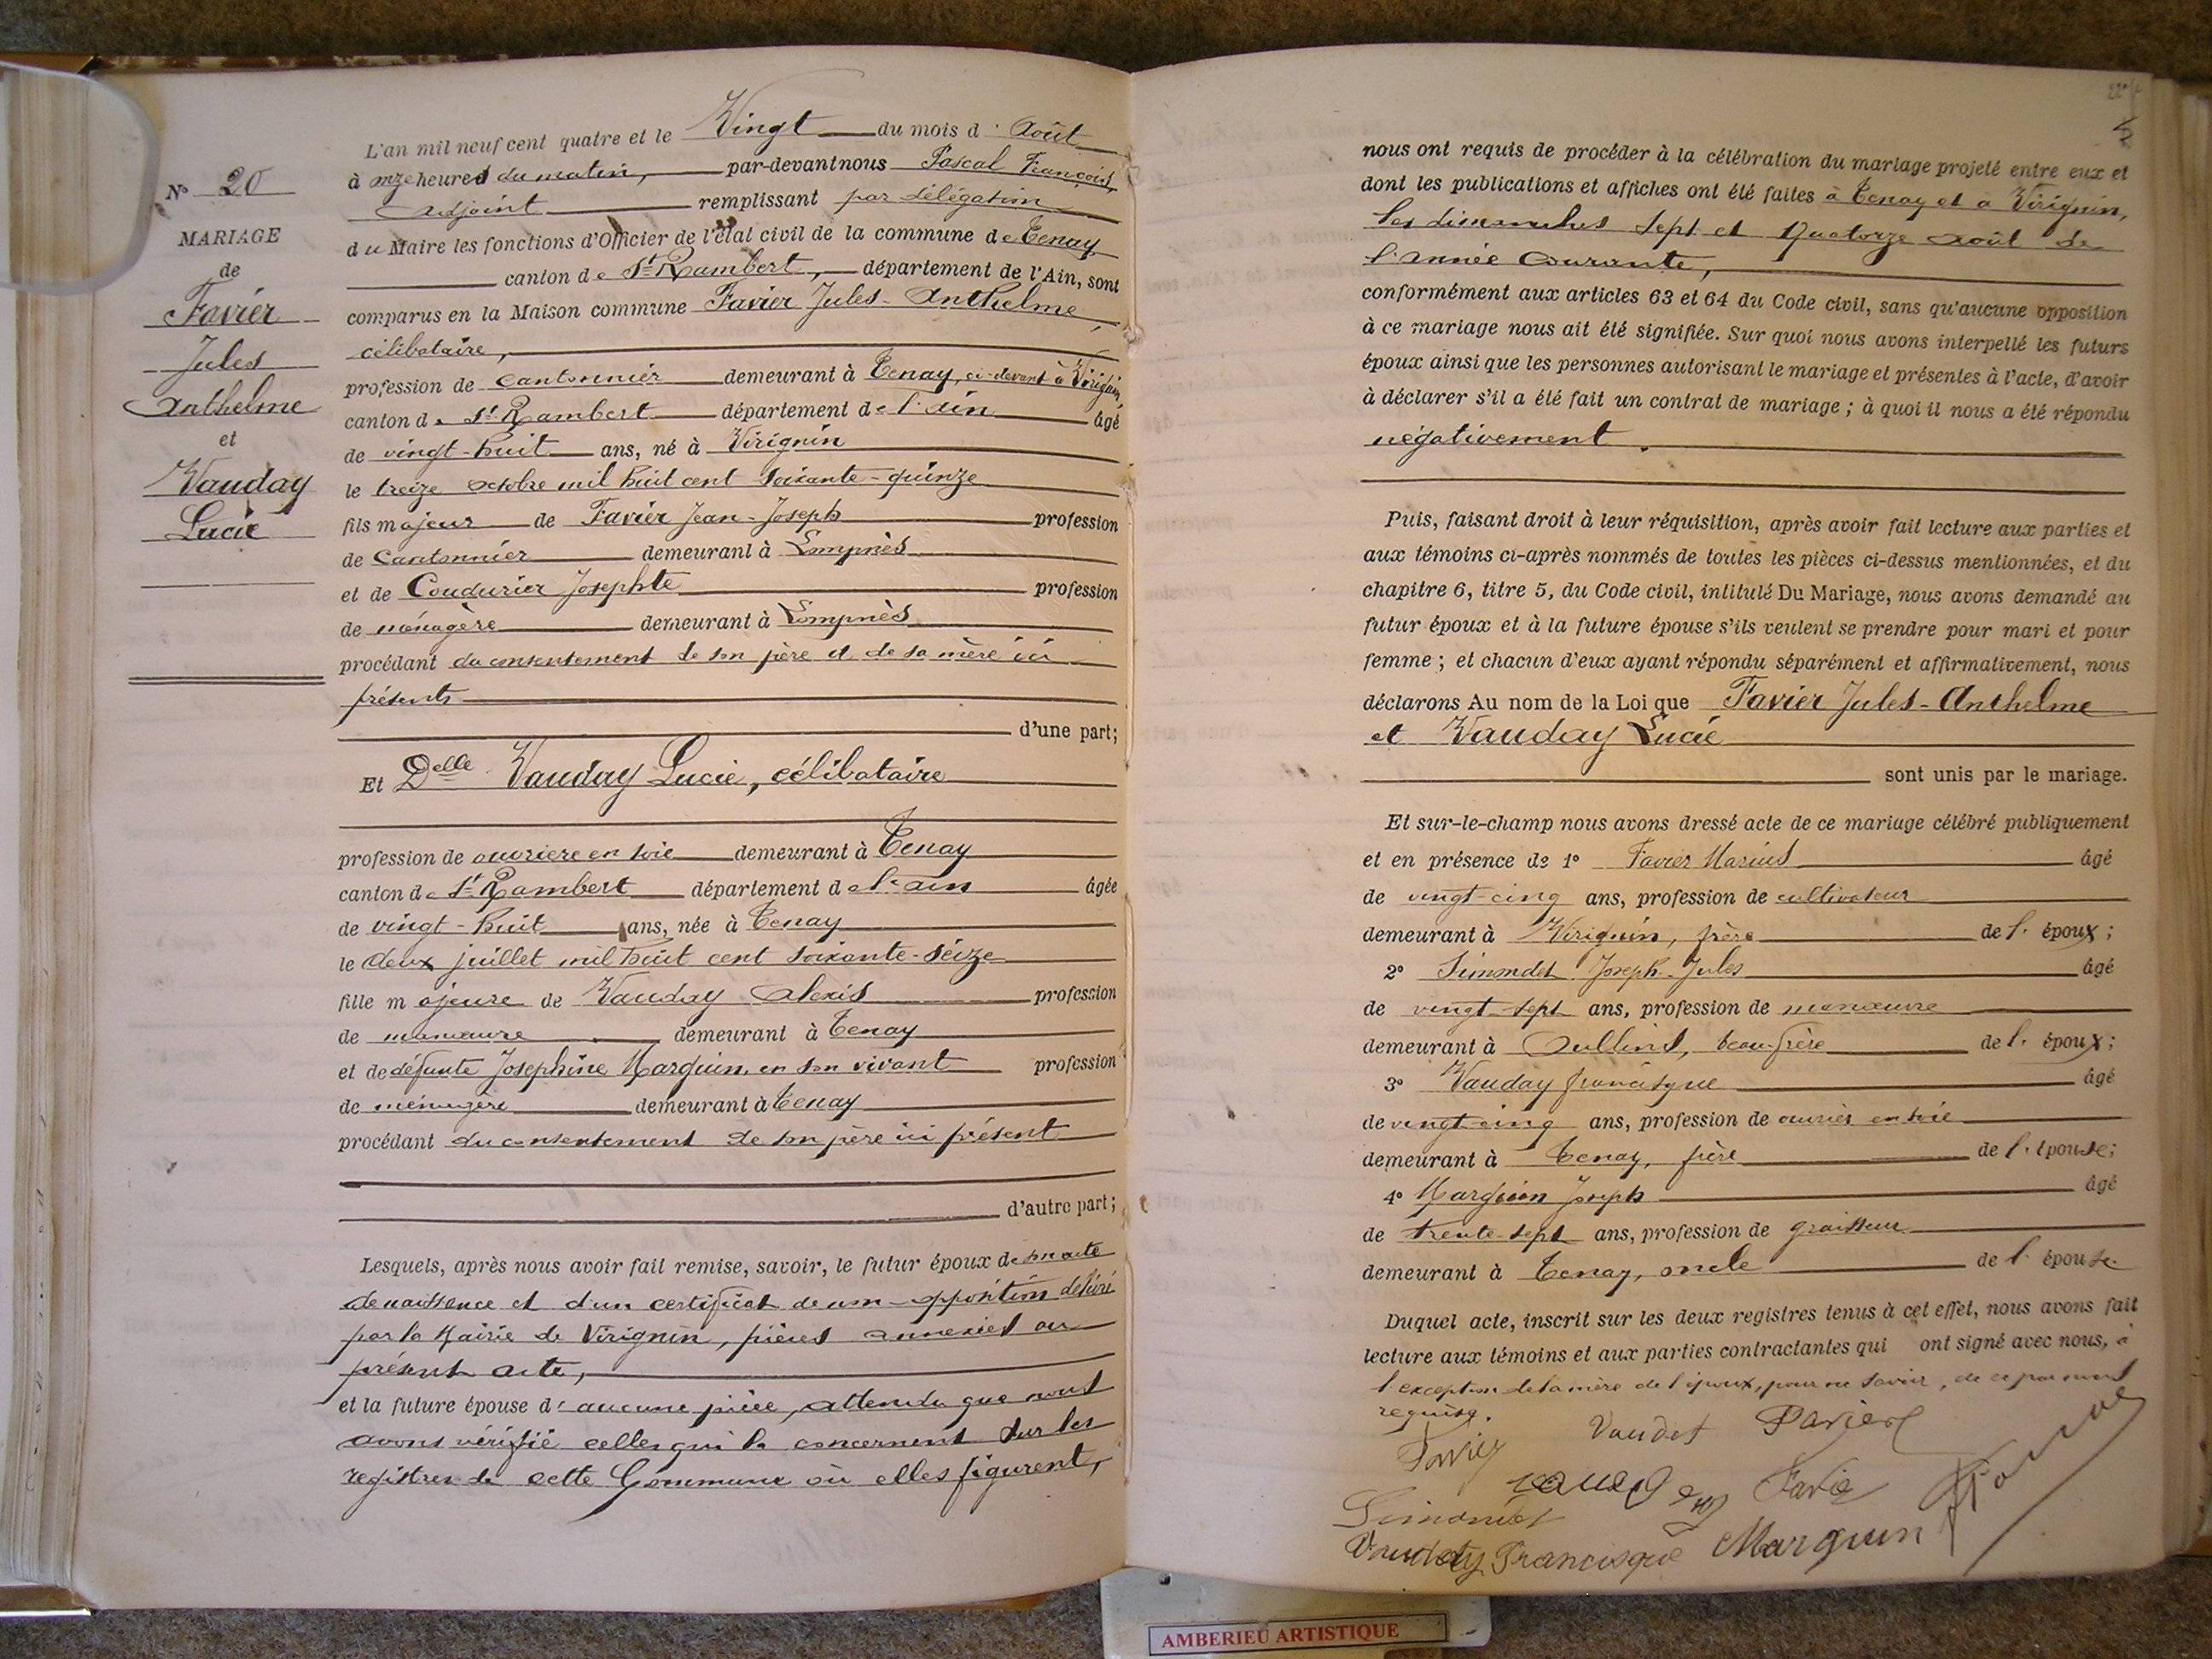 N° 20
MARIAGE
de
Favier
Jules
Anthelme
et
Vauday
Lucie
L'an mil neuf cent quatre et le Vingt du mois d' Août
à onze heures du matin, par-devant nous Pascal François,
adjoint remplissant par délégation
du Maire les fonctions d'Officier de l'état civil de la commune de Tenay
canton de St Rambert, département de l'Ain, sont
comparus en la Maison commune Favier Jules-Anthelme,
célibataire,
profession de cantonnier demeurant à Tenay, ci-devant à Virignin,
canton de St Rambert département de l'ain âgé
de vingt-huit ans, né à Virignin
le treize octobre mil huit cent soixante-quinze
fils majeur de Favier Jean-Joseph profession
de cantonnier demeurant à Lompnès
et de Coudurier Josephte profession
de ménagère demeurant à Lompnès
procédant du consentement de son père et de sa mère ici
présents
d'une part;
Et Delle Vauday Lucie, célibataire
profession de ouvriere en soie demeurant à Tenay
canton de St Rambert département de l'ain âgée
de vingt-huit ans, née à Tenay
le deux juillet mil huit cent soixante-seize
fille majeure de Vauday Alexis profession
de manœuvre demeurant à Tenay
et de défunte Josephine Marguin, en son vivant profession
de ménagère demeurant à Tenay
procédant du consentement de son père ici présent
d'autre part;
Lesquels, après nous avoir fait remise, savoir, le futur époux de son acte
de naissance et d'un certificat de non-opposition délivré
par la Mairie de Virignin, pièces annexées au
présent acte,
et la future épouse d'aucune pièce, attendu que nous
avons vérifié celles qui la concernent sur les
registres de cette Commune où elles figurent,
nous ont requis de procéder à la célébration du mariage projeté entre eux et
dont les publications et affiches ont été faites à Tenay et à Virignin,
les dimanches sept et quatorze août de
l'année courante,
conformément aux articles 63 et 64 du Code civil, sans qu'aucune opposition
à ce mariage nous ait été signifiée. Sur quoi nous avons interpellé les futurs
époux ainsi que les personnes autorisant le mariage et présentes à l'acte, d'avoir
à déclarer s'il a été fait un contrat de mariage ; à quoi il nous a été répondu
négativement.
Puis, faisant droit à leur réquisition, après avoir fait lecture aux parties et
aux témoins ci-après nommés de toutes les pièces ci-dessus mentionnées, et du
chapitre 6, titre 5, du Code civil, intitulé Du Mariage, nous avons demandé au
futur époux et à la future épouse s'ils veulent se prendre pour mari et pour
femme ; et chacun d'eux ayant répondu séparément et affirmativement, nous
déclarons Au nom de la Loi que Favier Jules-Anthelme
et Vauday Lucie
sont unis par le mariage.
Et sur-le-champ nous avons dressé acte de ce mariage célébré publiquement
et en présence de 1° Favier Marius âgé
de vingt-cinq ans, profession de cultivateur
demeurant à Virignin, frère de l'époux ;
2° Simondet Joseph-Jules âgé
de vingt-sept ans, profession de manœuvre
demeurant à Oullins, beau-frère de l'époux ;
3° Vauday francisque âgé
de vingt-cinq ans, profession de ouvrier en soie
demeurant à Tenay, frère de l'épouse ;
4° Marguin Joseph âgé
de trente-sept ans, profession de graisseur
demeurant à Tenay, oncle de l'épouse.
Duquel acte, inscrit sur les deux registres tenus à cet effet, nous avons fait
lecture aux témoins et aux parties contractantes qui ont signé avec nous, à
l'exception de la mère de l'époux, pour ne savoir, de ce par nous
requise.
Vaudet Favier
Favier
Favie
Simondet
Vauday Francisque Marguin
AMBERIEU ARTISTIQUE